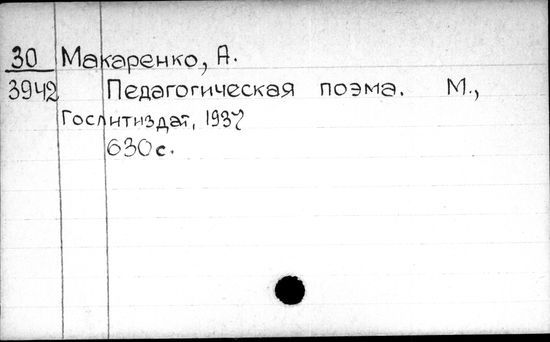 30 Макаренко, А.
3942 Педагогическая поэма. М.,
Гослитиздат, 1937
630 с.